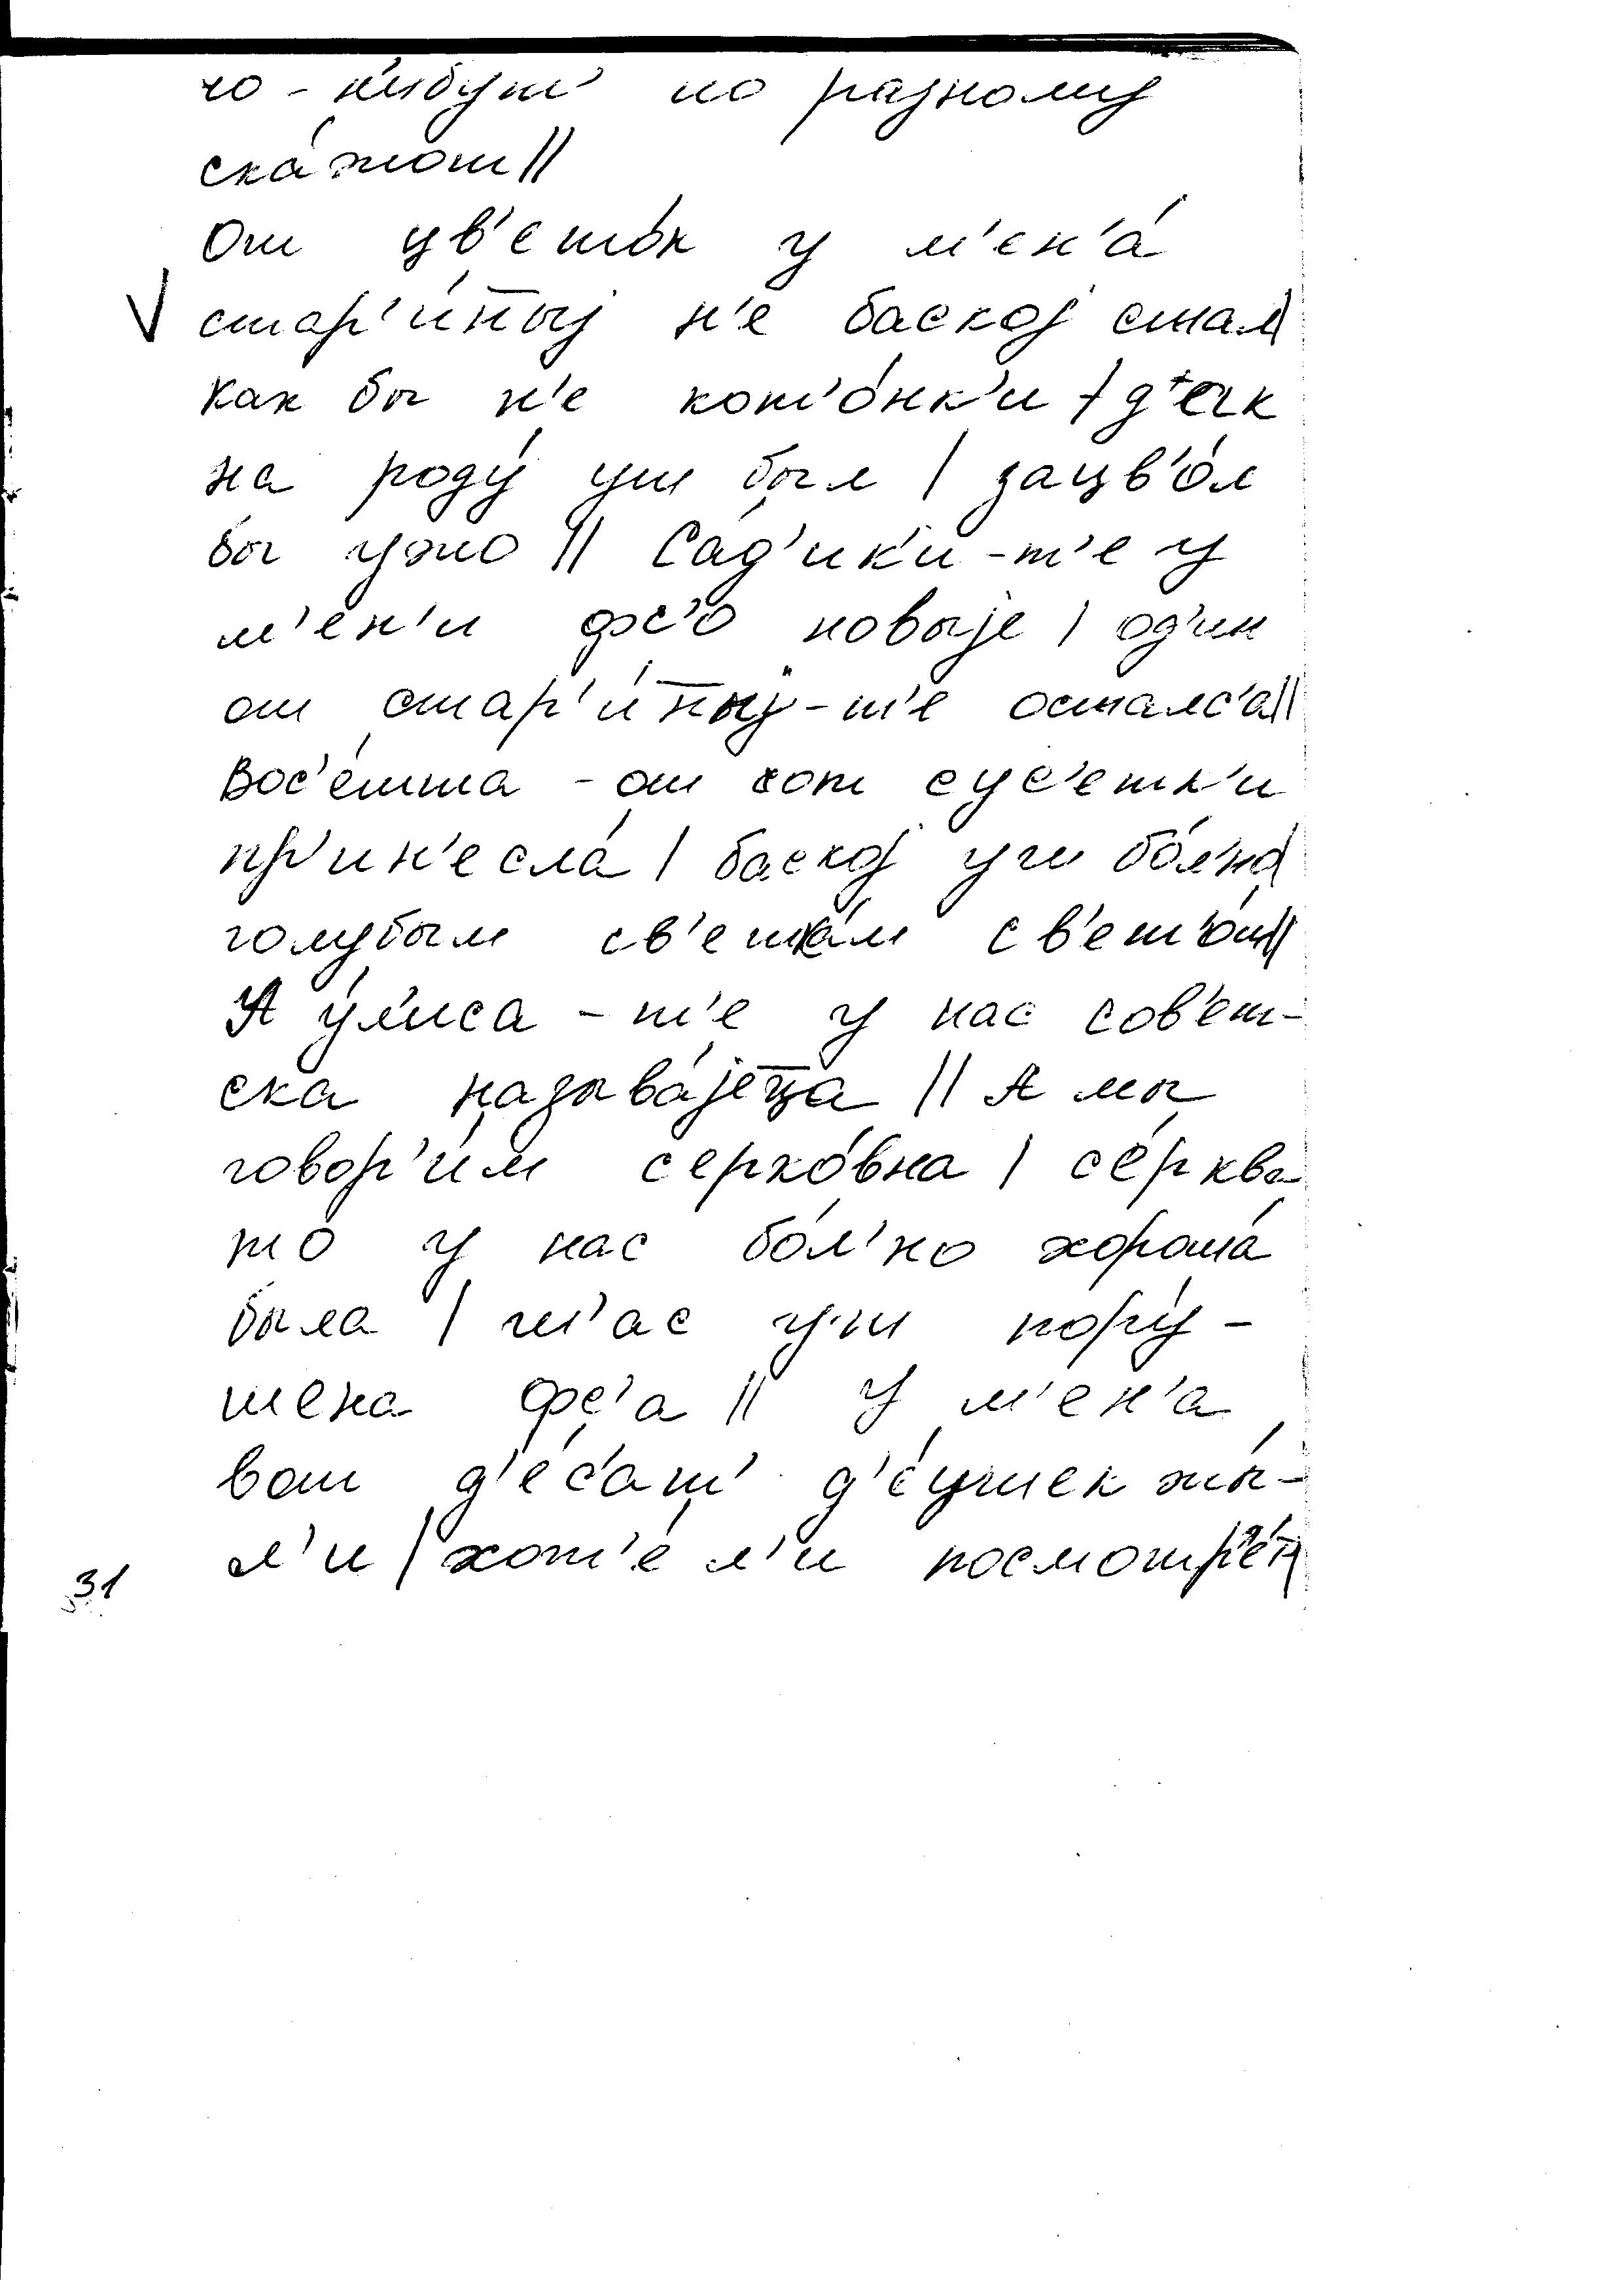 чо-н'ибут' по разному
ска́жот||
От цв'ето́к у м'ен'а́
V стар'и́н̅ыј н'е баској стал|
как бы н'е кот'о́нк'и / д'ек
на роду́ уш был | зацв'о́л
бы ужо || Са́д'ик'и-т'е у
м'ен'и фс'о новыје | од'ин
от стар'и́н̅ыј-т'е осталс'а||
Вос'е́тта-от сус'етк'и
пр'ин'есла́ | баској уш бо́л'но|
голубым св'етка́м св'ет'о́т||
А у́л'иса-т'е у нас сов'ет-
ска называ́јец̅а || А мы
говор'и́м серко́вна | се́рква
то у нас бо́л'но хороша́
была | ш'ас уш пору́-
шена фс'а || У м'ен'а
вот д'е́с'ат' д'е́ушек жы́-
л'и | хот'е́л'и посмотр'е́т'|
31